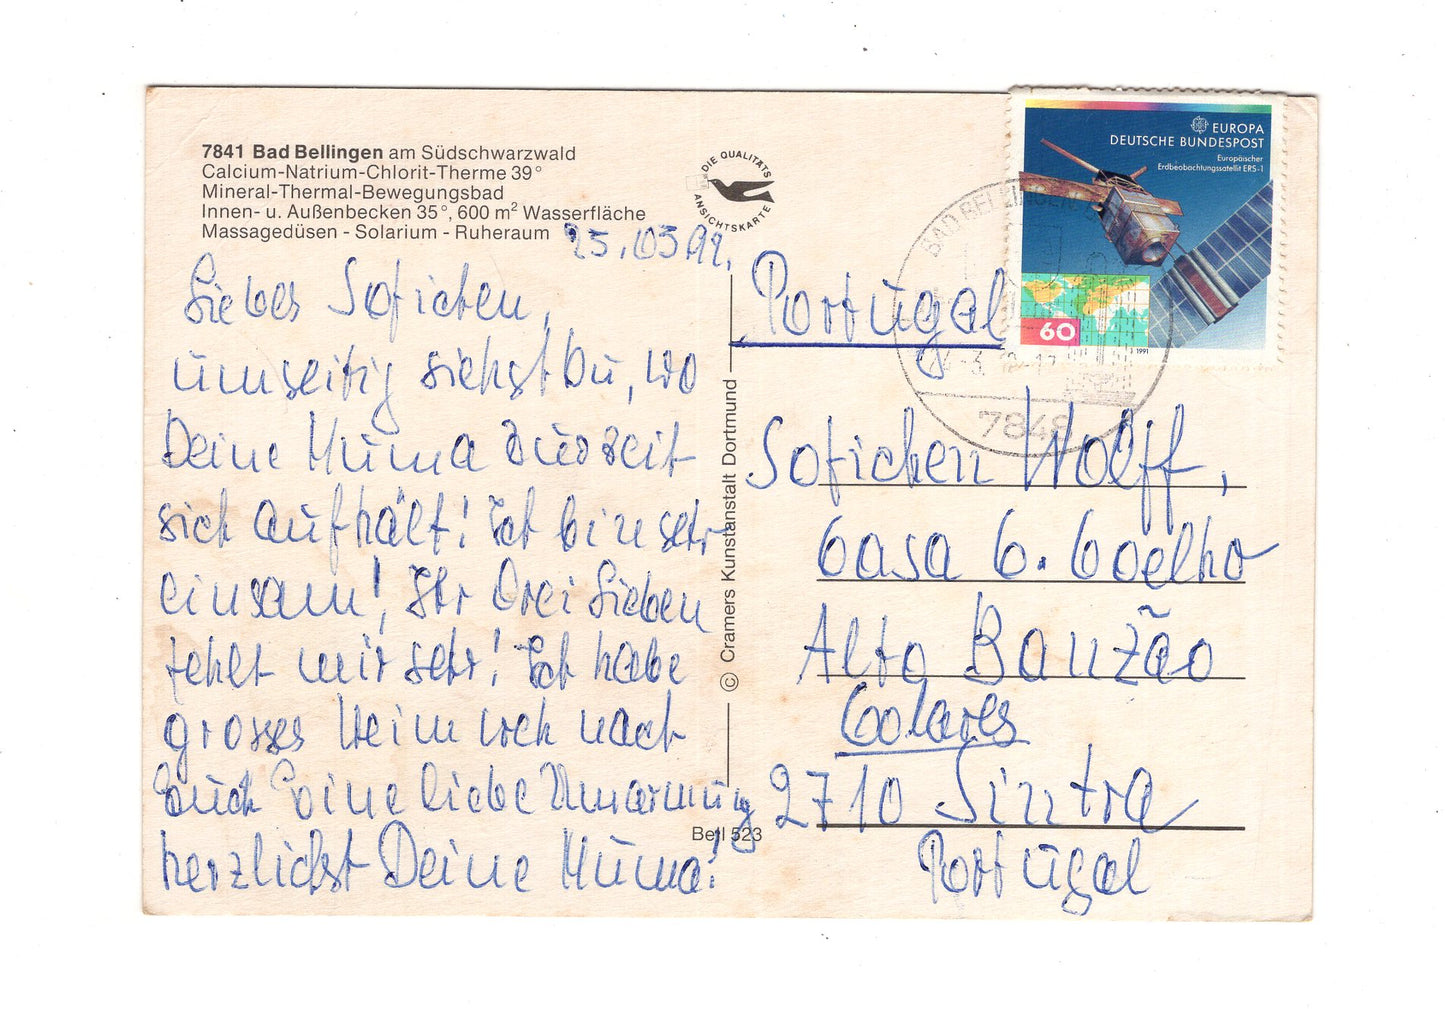 7841 Bad Bellingen am Südschwarzwald
Calcium-Natrium-Chlorit-Therme 39°
Mineral-Thermal-Bewegungsbad
Innen- u. Außenbecken 35°, 600 m² Wasserfläche
Massagedüsen - Solarium - Ruheraum
DIE QUALITÄTS
ANSICHTSKARTE
25.03.92.
Liebes Sofichen,
umseitig siehst Du, wo
Deine Muma zurzeit
sich aufhält! Ich bin sehr
einsam! Ihr drei Lieben
fehlt mir sehr! Ich habe
grosses Heimweh nach
Euch Eine liebe Umarmung
herzlichst Deine Muma!
© Cramers Kunstanstalt Dortmund
Bell 523
EUROPA
DEUTSCHE BUNDESPOST
Europäischer
Erdbeobachtungssatellit ERS-1
60
1991
BAD BELLINGEN
7848
Portugal
Sofichen Wolff,
Casa C. Coelho
Alto Banzão
Colares
2710 Sintra
Portugal